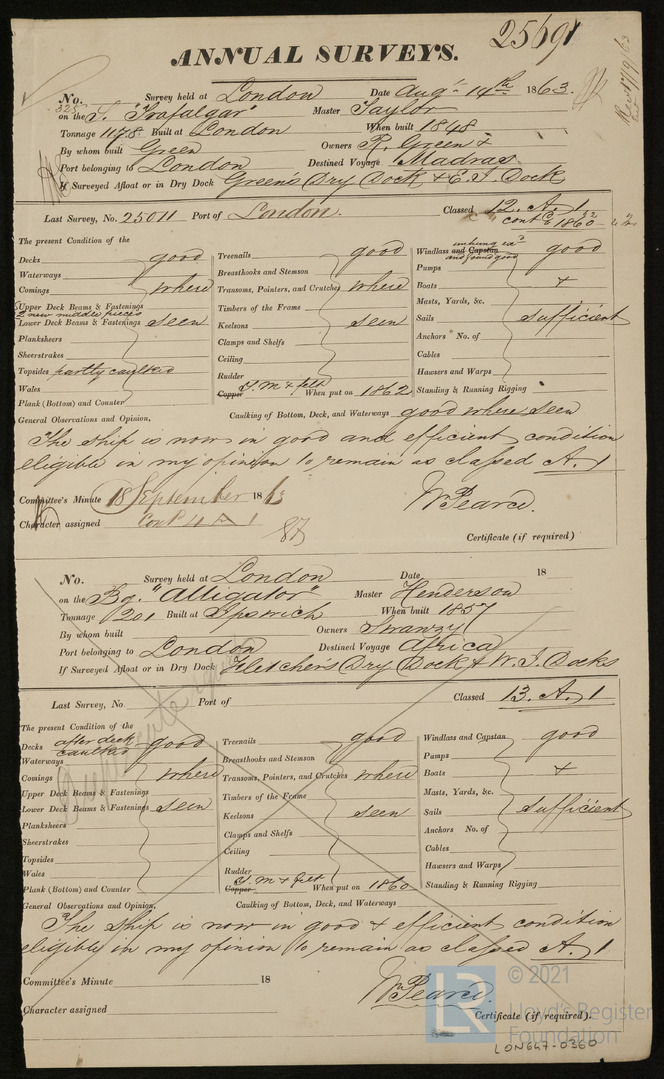 25691
ANNUAL SURVEYS.
No. 325 Survey held at London Date Augt 14th 1863.
on the S. "Trafalgar" Master Taylor
Tonnage 1178 Built at London When built 1848
By whom built Green Owners R. Green &
Port belonging to London Destined Voyage Madras
If Surveyed Afloat or in Dry Dock Green's Dry Dock & E. I Dock
Last Survey, No. 25011 Port of London. Classed 12. A. 1
contd 1860
The present Condition of the
Decks good
Waterways
Comings where
Upper Deck Beams & Fastenings
2 new middle pieces
Lower Deck Beams & Fastenings seen
Planksheers
Sheerstrakes
Topsides partly caulked
Wales
Plank (Bottom) and Counter
Treenails good
Breasthooks and Stemson
Transoms, Pointers, and Crutches where
Timbers of the Frame
Keelsons seen
Clamps and Shelfs
Ceiling
Rudder
Copper Y. M & felt When put on 1862
unhung
Windlass and Capstan good
and found good
Pumps
Boats &
Masts, Yards, &c.
Sails sufficient
Anchors No. of
Cables
Hawsers and Warps
Standing & Running Rigging
General Observations and Opinion, Caulking of Bottom, Deck, and Waterways good where seen
The ship is now in good and efficient condition
eligible in my opinion to remain as classed A. 1
Committee's Minute 18 September 1863
Wm Pearce.
Character assigned Contd 4 A 1
Certificate (if required)
No. Survey held at London Date 18
on the Bg. "Alligator" Master Henderson
Tonnage 201 Built at Ipswich When built 1857
By whom built Owners Swanzy
Port belonging to London Destined Voyage Africa
If Surveyed Afloat or in Dry Dock Fletcher's Dry Dock & W. I. Docks
Last Survey, No. Port of Classed 13. A. 1
Duplicate
The present Condition of the
after deck
Decks caulked good
Waterways
Comings where
Upper Deck Beams & Fastenings
Lower Deck Beams & Fastenings seen
Planksheers
Sheerstrakes
Topsides
Wales
Plank (Bottom) and Counter
Treenails good
Breasthooks and Stemson
Transoms, Pointers, and Crutches where
Timbers of the Frame
Keelsons seen
Clamps and Shelfs
Ceiling
Rudder
Copper Y. M & felt When put on 1860
Windlass and Capstan good
Pumps
Boats &
Masts, Yards, &c.
Sails sufficient
Anchors No. of
Cables
Hawsers and Warps
Standing & Running Rigging
General Observations and Opinion, Caulking of Bottom, Deck, and Waterways
The ship is now in good & efficient condition
eligible in my opinion to remain as classed A. 1
Committee's Minute 18
Wm Pearce.
Character assigned
Certificate (if required).
LR © 2021
Lloyd's Register
Foundation
LON647-0360